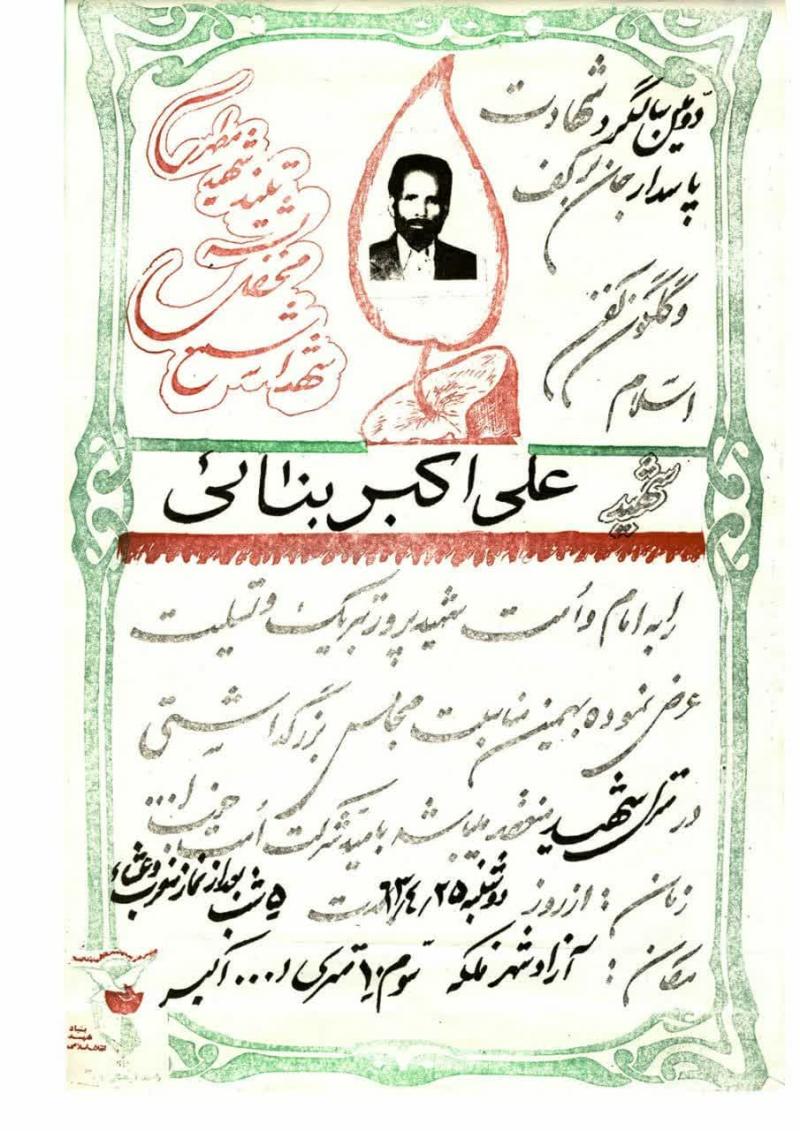 دوّمین سالگرد شهادت
پاسدار جان برکف
و گلگون کفن
اسلام
شهید مطهری
شهدا شمع محفل بشریتند
شهید علی اکبر بنائی
را به امام و اُمت شهید پرور تبریک و تسلیت
عرض نموده بهمین مناسبت مجلس بزرگداشتی
در منزل شهید منعقد میباشد بامید شرکت اُمت حزب ا...
زمان : از روز دوشنبه ۶۳/۴/۲۵ بمدت ۵ شب بعد از نماز مغرب و عشاء
مکان : آزادشهر فلکه سوّم ۱۰ متری ا... اکبر
بنیاد
شهید
انقلاب اسلامی